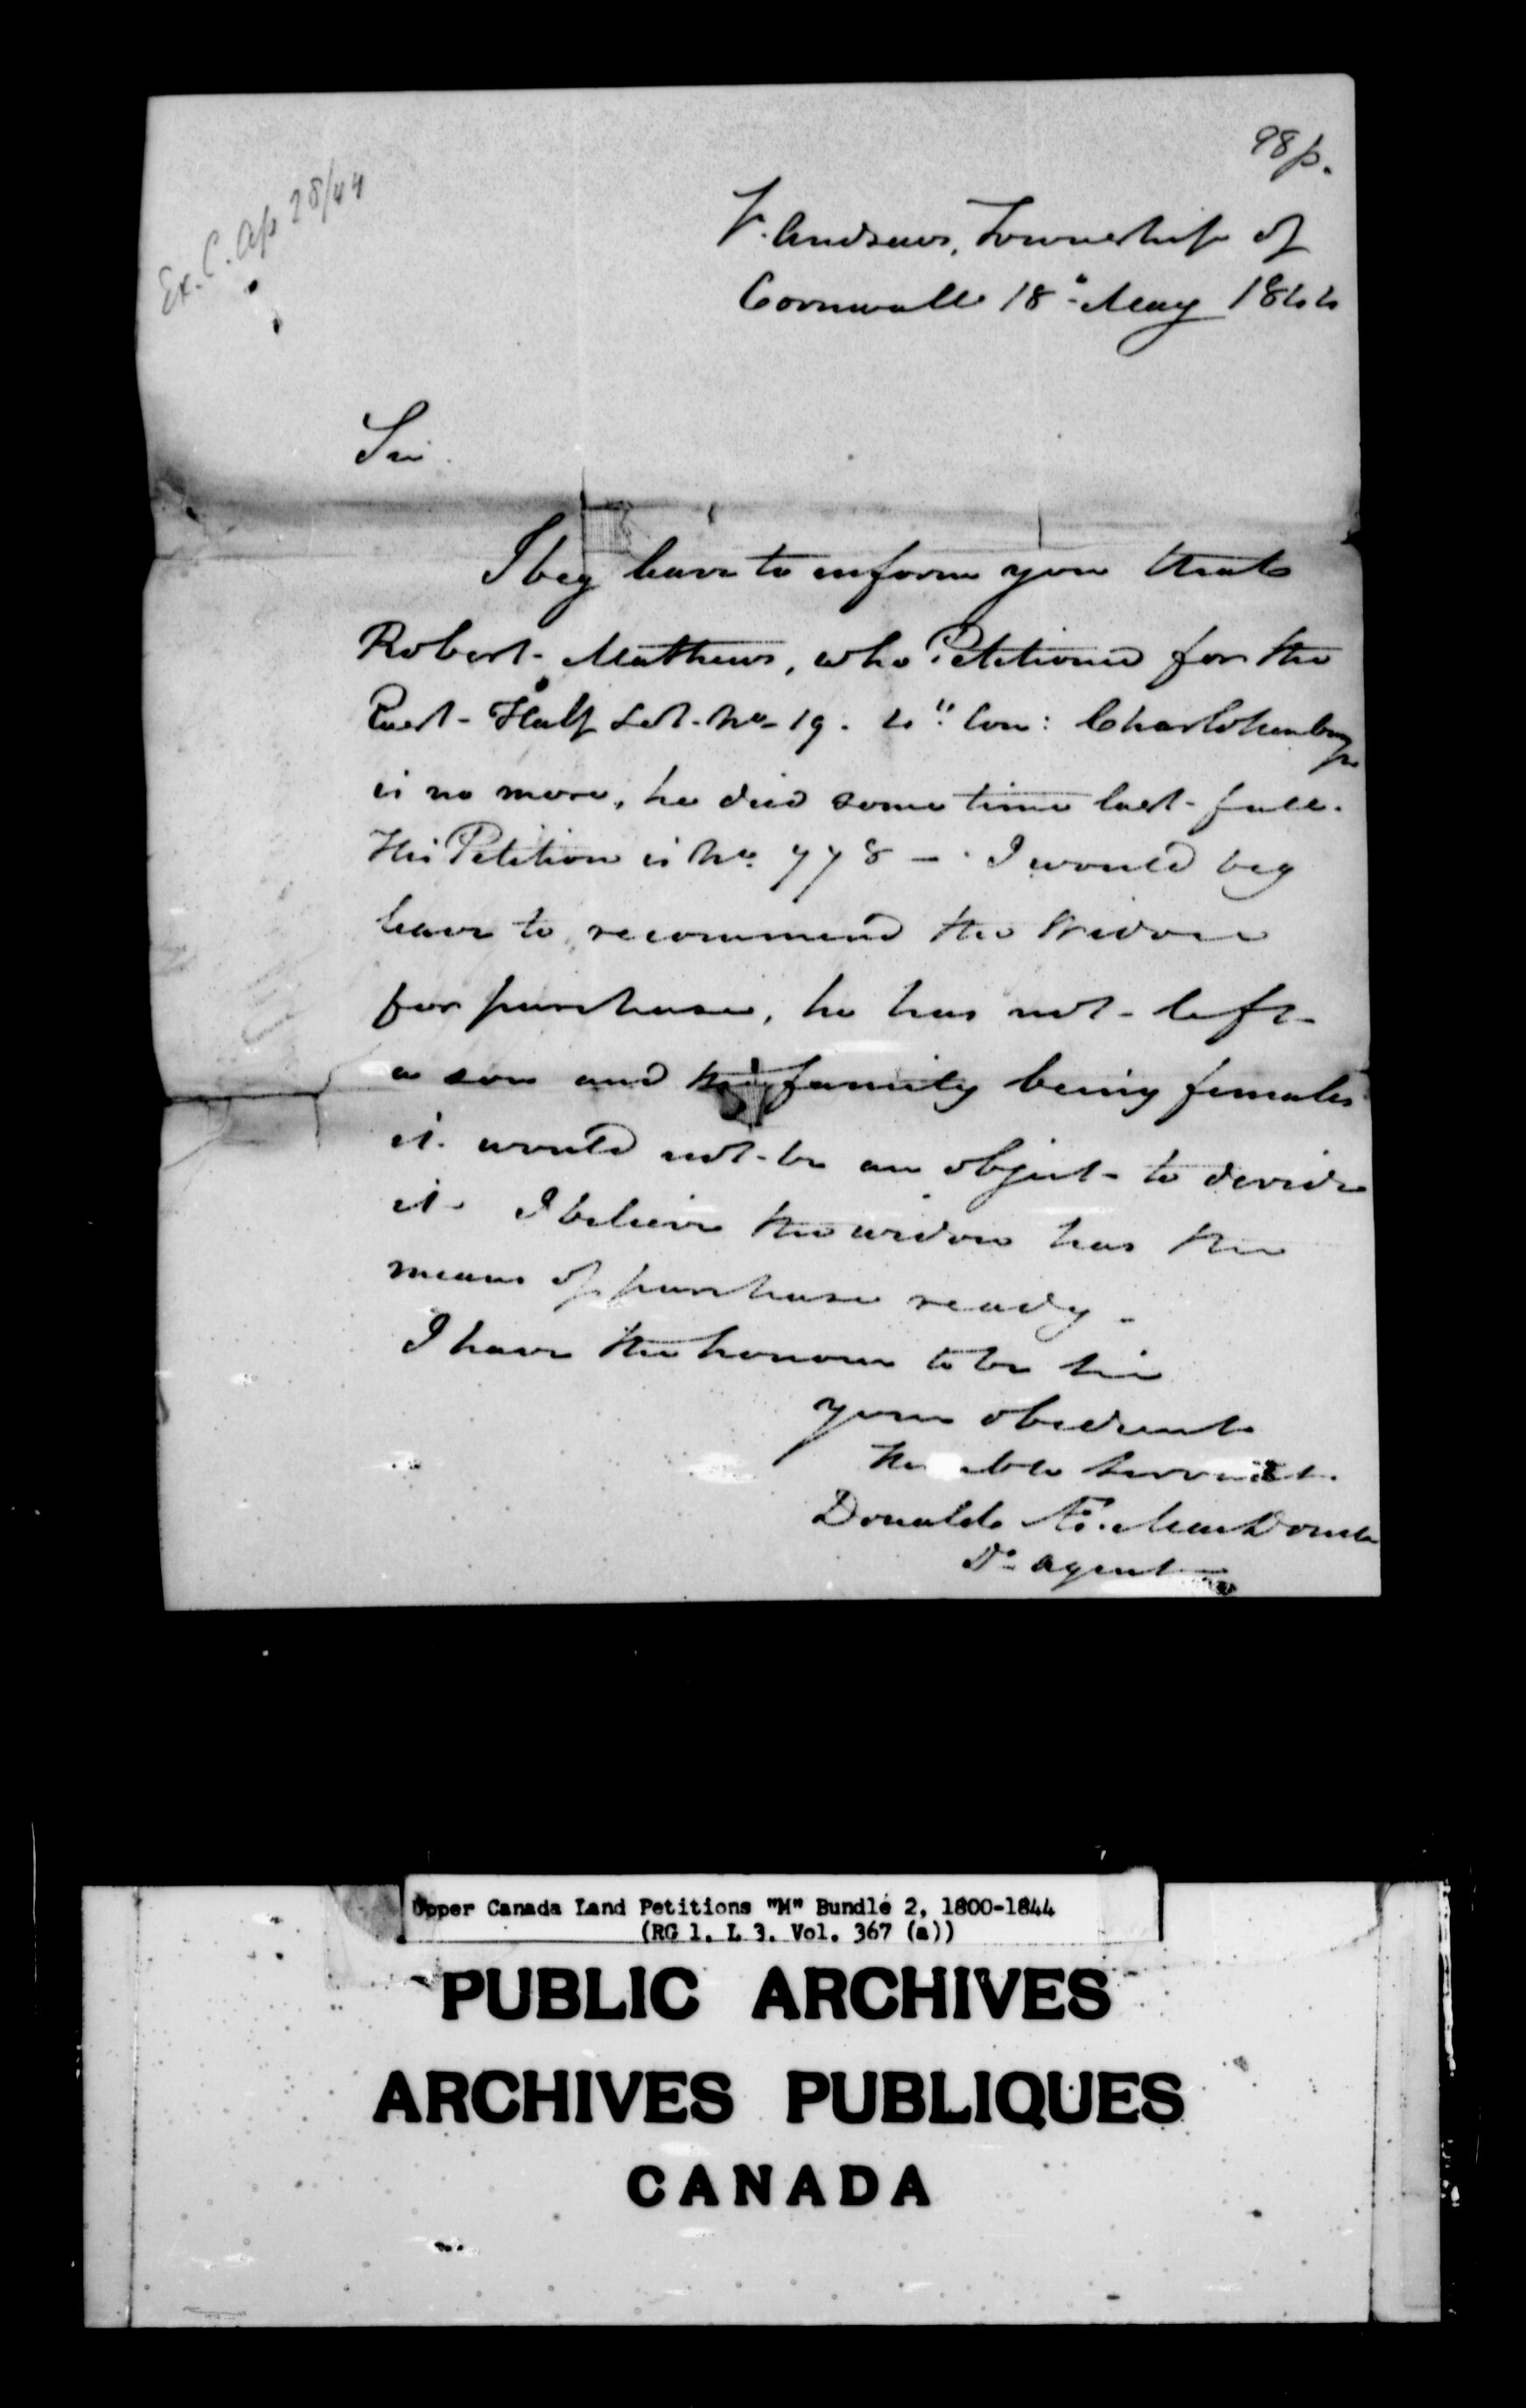 98 p.
Ex. C. Ap 28/44
St. Andrews, Township of
Cornwall 18th May 1844
Sir
I beg leave to inform you that
Robert Mathews, who Petitioned for the
East Half Lot No 19. 4" Con: Charlottenburgh
is no more, he died some time last fall.
His Petition is No 778 — I would beg
leave to recommend the Widow
for purchase, he has not left
a son and his family being females
it would not be an object to devide
it I believe the widow has the
means of purchase ready.
I have the honour to be Sir
your obedient
humble servant
Donald Æ. MacDonell
Dt agent
Upper Canada Land Petitions "M" Bundle 2, 1800-1844
(RG 1, L 3, Vol. 367 (a))
PUBLIC ARCHIVES
ARCHIVES PUBLIQUES
CANADA